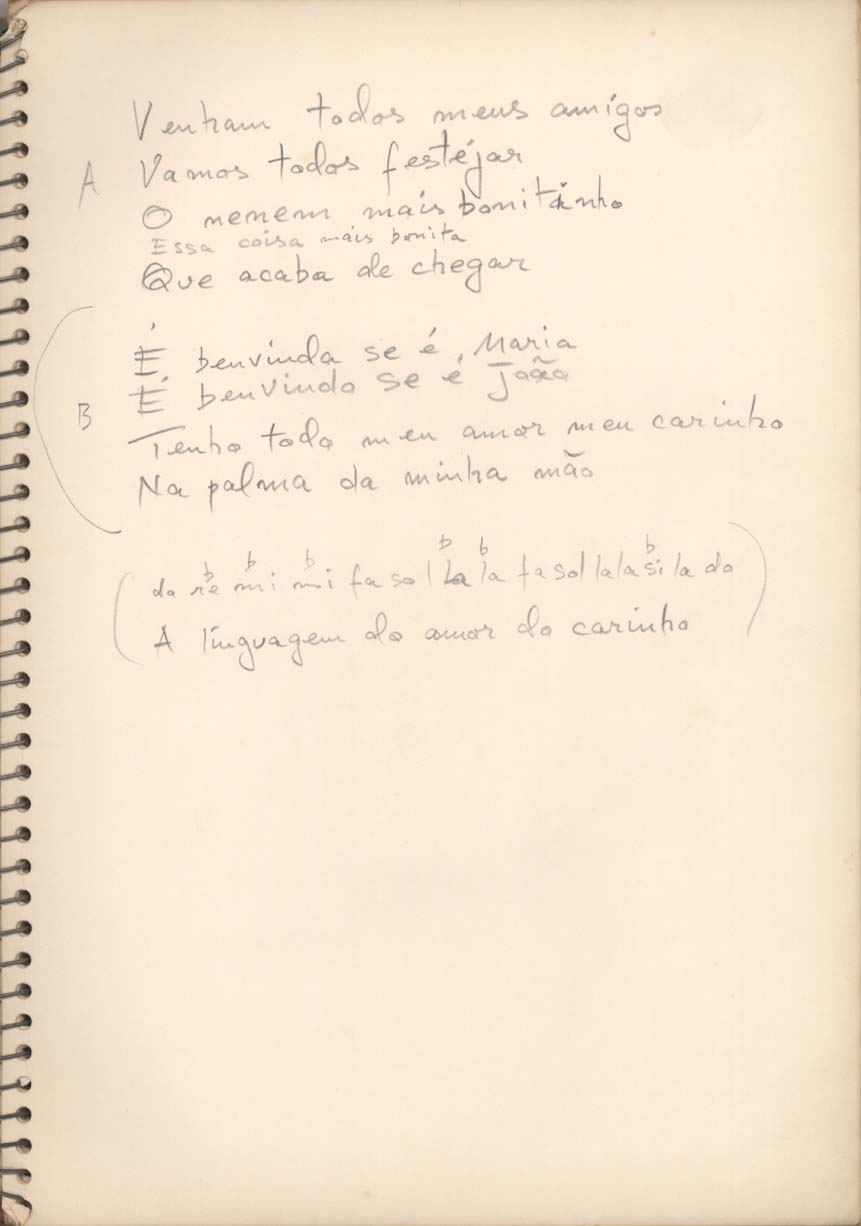 Venham todos meus amigos
A Vamos todos festejar
O nenem mais bonitinho
Essa coisa mais bonita
Que acaba de chegar
É benvinda se é Maria
É benvindo se é João
B
Tenho todo meu amor meu carinho
Na palma da minha mão
b b b b b b
(do ré mi mi fa sol la la fa sol la la si la do)
A linguagem do amor do carinho